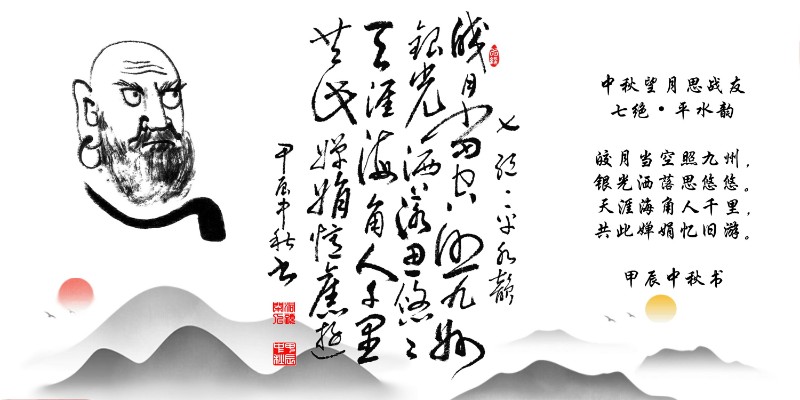 七絕：平水韻
皎月當空照九州
銀光洒落思悠悠
天涯海角人千里
共此嬋娟憶舊遊
甲辰中秋书
甲辰中秋
中秋望月思战友
七绝·平水韵
皎月当空照九州，
银光洒落思悠悠。
天涯海角人千里，
共此婵娟忆旧游。
甲辰中秋书